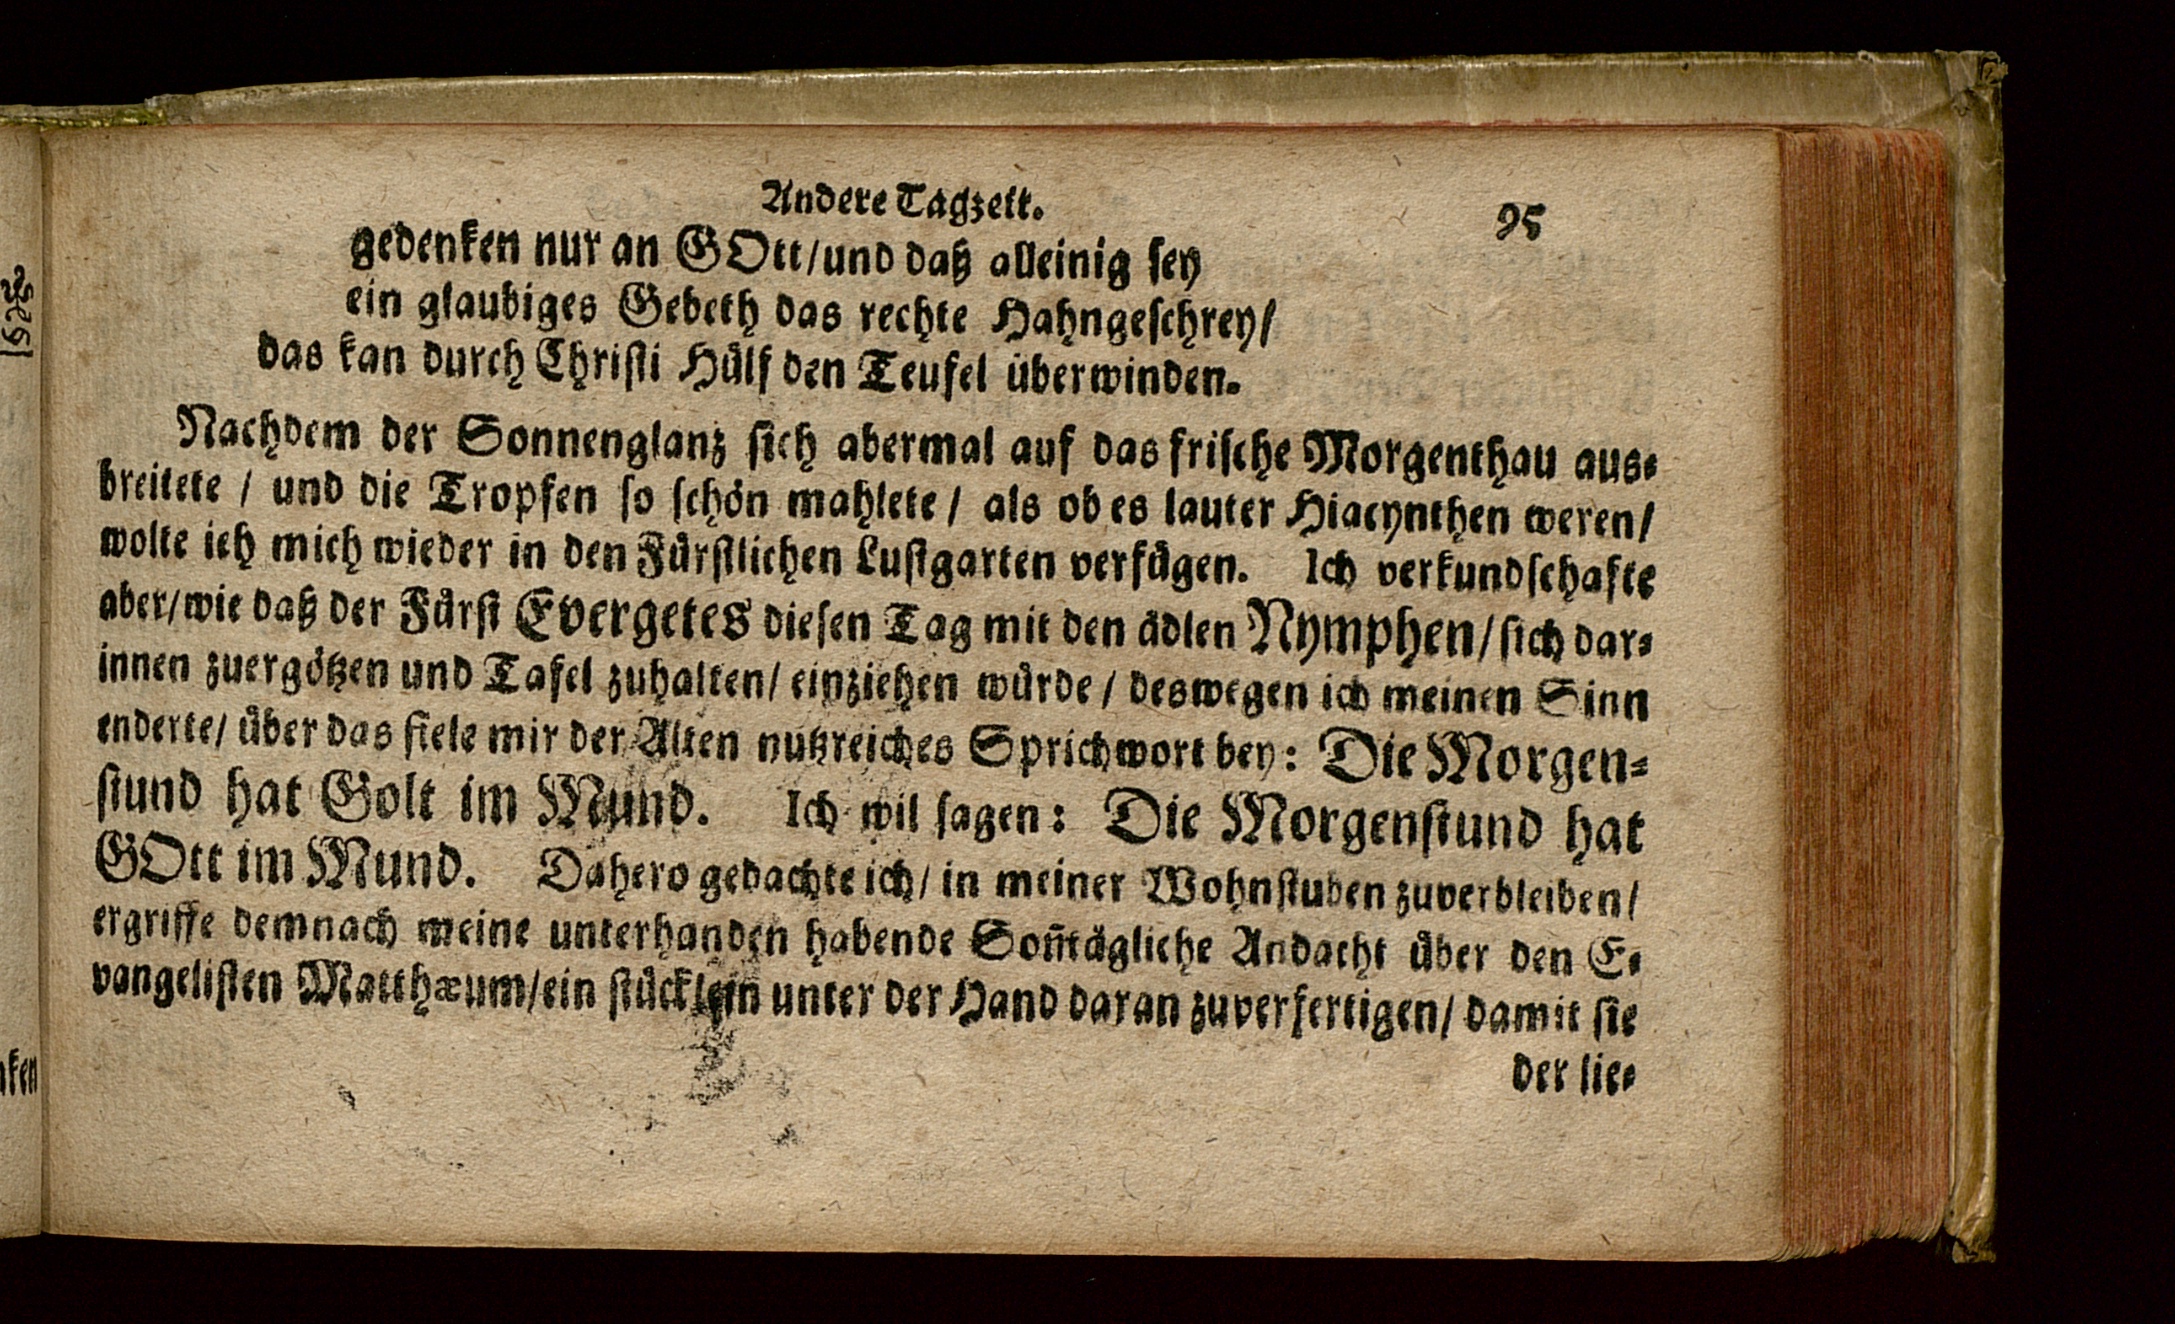 Andere Tagzeit. 95
gedenken nur an GOtt/und daß alleinig ſey
ein glaubiges Gebeth das rechte Hahngeſchrey/
das kan durch Chriſti Huͤlf den Teufel uͤberwinden.
Nachdem der Sonnenglanz ſich abermal auf das friſche Morgenthau aus⸗
breitete / und die Tropfen ſo ſchoͤn mahlete / als ob es lauter Hiacynthen weren/
wolte ich mich wieder in den Fuͤrſtlichen Luſtgarten verfuͤgen. Ich verkundſchafte
aber/wie daß der Fuͤrſt Evergetes dieſen Tag mit den aͤdlen Nymphen/ſich dar⸗
innen zuergoͤtzen und Tafel zuhalten/ einziehen wuͤrde / deswegen ich meinen Sinn
enderte/ uͤber das fiele mir der Alten nutzreiches Sprichwort bey: Die Morgen⸗
ſtund hat Golt im Mund. Ich wil ſagen: Die Morgenſtund hat
GOtt im Mund. Dahero gedachte ich/ in meiner Wohnſtuben zuverbleiben/
ergriffe demnach meine unterhanden habende Som̃taͤgliche Andacht uͤber den E⸗
vangeliſten Matthæum/ein ſtuͤcklein unter der Hand daran zuverfertigen/ damit ſie
der lie⸗
nken